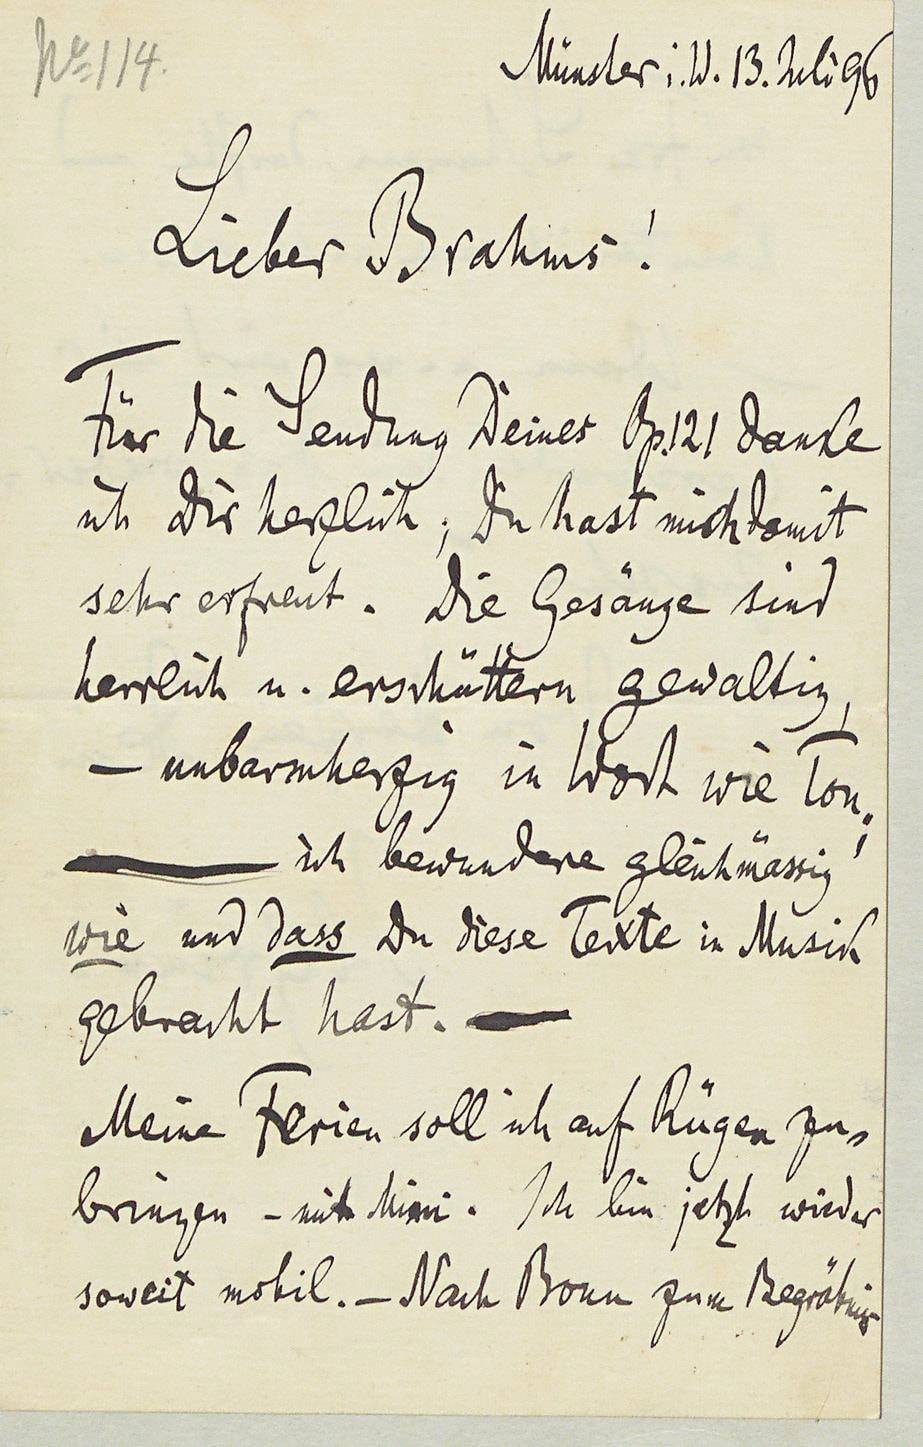 No 114.
Münster i. W. 13. Juli 96
Lieber Brahms!
Für die Sendung Deines Op. 121 danke
ich Dir herzlich; Du hast mich damit
sehr erfreut. Die Gesänge sind
herrlich u. erschüttern gewaltig,
– unbarmherzig in Wort wie Ton;
ich bewundere gleichmässig!
wie und dass Du diese Texte in Musik
gebracht hast. –
Meine Ferien soll ich auf Rügen zu-
bringen – mit Mimi. Ich bin jetzt wieder
soweit mobil. – Nach Bonn zum Begräbnis